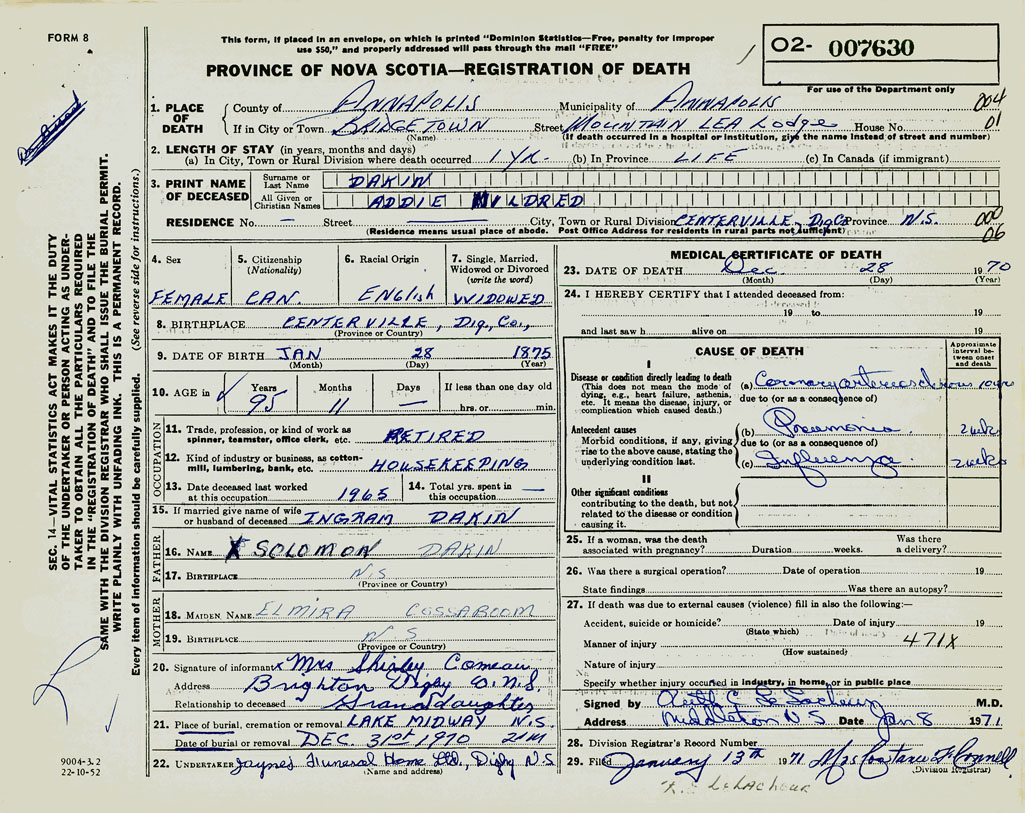 FORM 8
This form, if placed in an envelope, on which is printed "Dominion Statistics—Free, penalty for improper
use $50," and properly addressed will pass through the mail "FREE"
O2- 007630
For use of the Department only
PROVINCE OF NOVA SCOTIA—REGISTRATION OF DEATH
004
01
1. PLACE OF DEATH
County of ANNAPOLIS Municipality of ANNAPOLIS
If in City or Town BRIDGETOWN Street MOUNTAIN LEA Lodge House No.
(Name) (If death occurred in a hospital or institution, give the name instead of street and number)
2. LENGTH OF STAY (in years, months and days)
(a) In City, Town or Rural Division where death occurred 1 YR. (b) In Province LIFE (c) In Canada (if immigrant)
3. PRINT NAME OF DECEASED
Surname or Last Name DAKIN
All Given or Christian Names ADDIE MILDRED
RESIDENCE No. — Street City, Town or Rural Division CENTERVILLE, Dig Co Province N.S.
(Residence means usual place of abode. Post Office Address for residents in rural parts not sufficient)
000
06
4. Sex
FEMALE
5. Citizenship (Nationality)
CAN.
6. Racial Origin
ENGlish
7. Single, Married, Widowed or Divorced (write the word)
WIDOWED
8. BIRTHPLACE CENTERVILLE, Dig, Co.,
(Province or Country)
9. DATE OF BIRTH JAN 28 1875
(Month) (Day) (Year)
10. AGE in ✓ Years Months Days If less than one day old
95 11 — hrs. or min.
OCCUPATION
11. Trade, profession, or kind of work as spinner, teamster, office clerk, etc. RETIRED
12. Kind of industry or business, as cotton-mill, lumbering, bank, etc. HOUSEKEEPING
13. Date deceased last worked at this occupation 1965
14. Total yrs. spent in this occupation —
15. If married give name of wife or husband of deceased INGRAM DAKIN
FATHER
16. NAME SOLOMON DAKIN
17. BIRTHPLACE N.S
(Province or Country)
MOTHER
18. MAIDEN NAME ELMIRA COSSABOOM
19. BIRTHPLACE N.S
(Province or Country)
20. Signature of informant x Mrs Shirley Comeau
Address Brighton Digby Co. N.S.
Relationship to deceased Granddaughter
21. Place of burial, cremation or removal LAKE MIDWAY N.S.
Date of burial or removal DEC. 31st 1970
22. UNDERTAKER Jayne's Funeral Home Ltd., Digby N.S
(Name and address)
MEDICAL CERTIFICATE OF DEATH
23. DATE OF DEATH Dec 28 1970
(Month) (Day) (Year)
24. I HEREBY CERTIFY that I attended deceased from:
19 to 19
and last saw h alive on 19
CAUSE OF DEATH
Approximate interval between onset and death
I
Disease or condition directly leading to death
(This does not mean the mode of dying, e.g., heart failure, asthenia, etc. It means the disease, injury, or complication which caused death.)
(a) Coronary arteriosclerosis 10 yrs
due to (or as a consequence of)
Antecedent causes
Morbid conditions, if any, giving rise to the above cause, stating the underlying condition last.
(b) Pneumonia 2 wks
due to (or as a consequence of)
(c) Influenza 2 wks
II
Other significant conditions
contributing to the death, but not related to the disease or condition causing it.
25. If a woman, was the death associated with pregnancy? Duration weeks. Was there a delivery?
26. Was there a surgical operation? Date of operation 19
State findings Was there an autopsy?
27. If death was due to external causes (violence) fill in also the following:—
Accident, suicide or homicide? Date of injury 19
(State which)
Manner of injury 471X
(How sustained)
Nature of injury
Specify whether injury occurred in industry, in home, or in public place
Signed by M.D.
Address Middleton N S Date Jan 8 1971
28. Division Registrar's Record Number
29. Filed January 13th 1971
(Division Registrar)
SEC. 14—VITAL STATISTICS ACT MAKES IT THE DUTY
OF THE UNDERTAKER OR PERSON ACTING AS UNDER-
TAKER TO OBTAIN ALL THE PARTICULARS REQUIRED
IN THE "REGISTRATION OF DEATH" AND TO FILE THE
SAME WITH THE DIVISION REGISTRAR WHO SHALL ISSUE THE BURIAL PERMIT.
WRITE PLAINLY WITH UNFADING INK. THIS IS A PERMANENT RECORD.
Every item of information should be carefully supplied. (See reverse side for instructions.)
9004-3.2
22-10-52